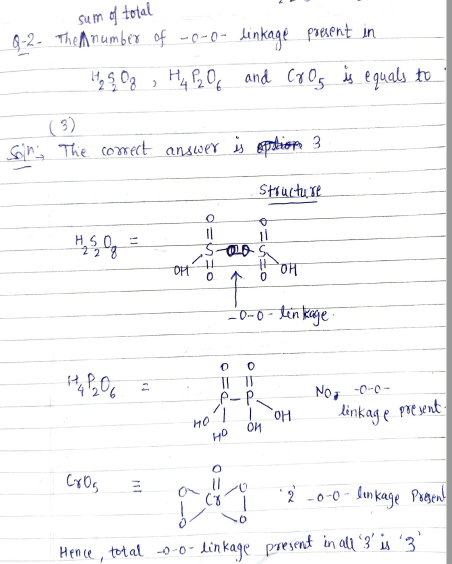 sum of total
Q-2- The number of -O-O- linkage present in
H2S2O8 , H4P2O6 and CrO5 is equals to
(3)
Soln: The correct answer is option 3
Structure
H2S2O8 =
O O
|| ||
S-O-O-S
OH || || OH
O O
-O-O- linkage.
H4P2O6 =
O O
|| ||
P-P
HO | | OH
HO OH
No, -O-O-
linkage present.
CrO5 ≡
O
||
O O
Cr
O O
'2' -O-O- linkage Present
Hence, total -O-O- linkage present in all '3' is '3'